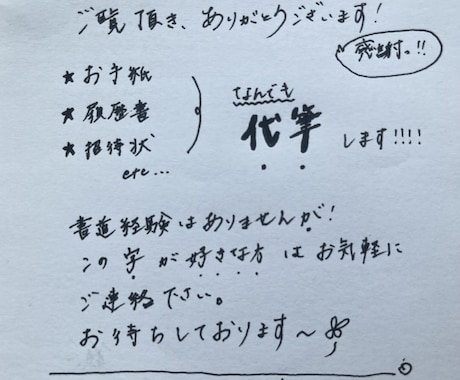 ご覧頂き、ありがとうございます!
感謝。!!
★お手紙
★履歴書
★招待状
etc...
なんでも
代筆します!!!!
書道経験はありませんが!
この字が好きな方はお気軽に
ご連絡下さい。
お待ちしております〜